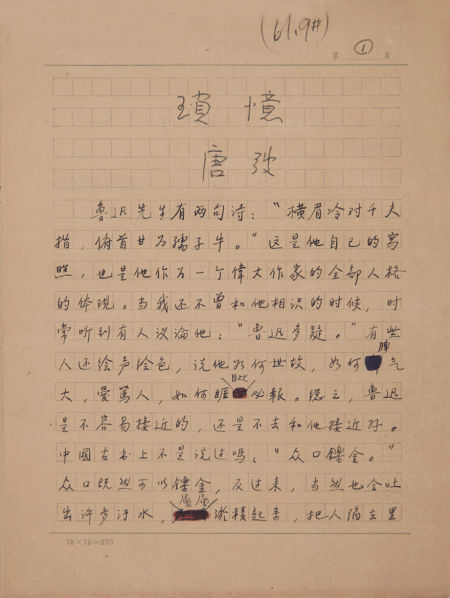 (61.9#)
第 ① 頁
瑣憶
唐弢
魯迅先生有两句诗："横眉冷对千夫
指，俯首甘为孺子牛。"这是他自己的写
照，也是他作为一个偉大作家的全部人格
的体现。当我还不曾和他相识的时候，时
常听到有人议论他："魯迅多疑。"有些
人还绘声绘色，说他如何世故，如何脾气
大，愛罵人，如何睚眦必報。总之，魯迅
是不容易接近的，还是不去和他接近好。
中國古书上不是说过嗎："众口鑠金。"
众口既然可以鑠金，反过来，当然也会吐
出许多污水，屑屑淤積起来，把人陷在里
18×15=270